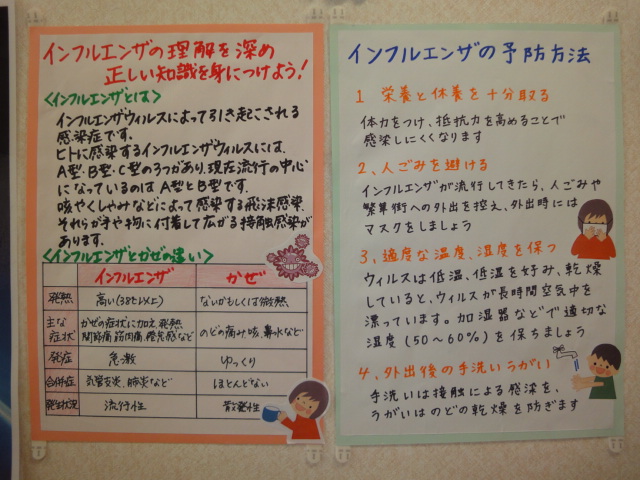 インフルエンザの理解を深め
正しい知識を身につけよう!
<インフルエンザとは>
インフルエンザウィルスによって引き起こされる
感染症です。
ヒトに感染するインフルエンザウィルスには、
A型・B型・C型の3つがあり、現在流行の中心
になっているのは A型とB型です。
咳やくしゃみなどによって感染する飛沫感染、
それらが手や物に付着して広がる接触感染が
あります。
<インフルエンザとかぜの違い>
インフルエンザ かぜ
発熱 高い(38℃以上) ないかもしくは微熱
主な症状 かぜの症状に加え、発熱 関節痛、筋肉痛、倦怠感など のどの痛み、咳、鼻水など
発症 急激 ゆっくり
合併症 気管支炎、肺炎など ほとんどない
発生状況 流行性 散発性
インフルエンザの予防方法
1 栄養と休養を十分取る
体力をつけ、抵抗力を高めることで
感染しにくくなります
2、人ごみを避ける
インフルエンザが流行してきたら、人ごみや
繁華街への外出を控え、外出時には
マスクをしましょう
3、適度な温度、湿度を保つ
ウィルスは低温、低湿を好み、乾燥
していると、ウィルスが長時間空気中を
漂っています。加湿器などで適切な
湿度(50〜60%)を保ちましょう
4、外出後の手洗いうがい
手洗いは接触による感染を、
うがいはのどの乾燥を防ぎます